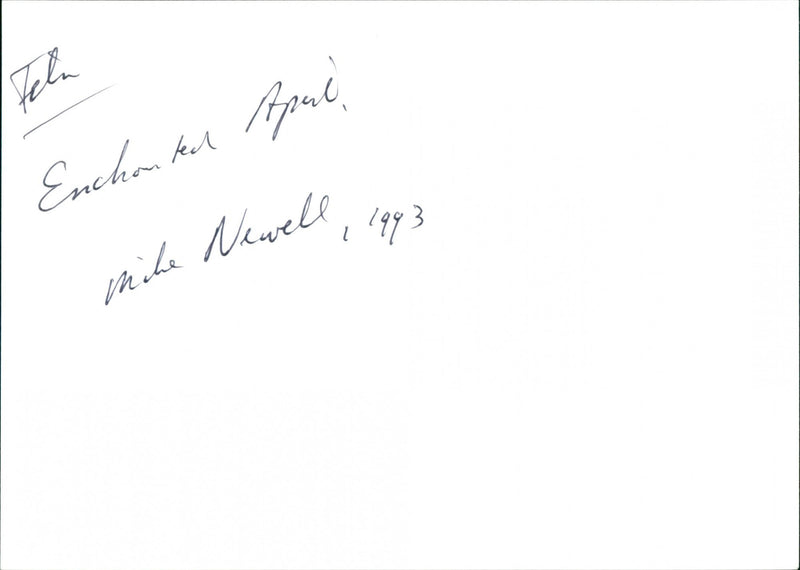 Film
Enchanted April.
Mike Newell, 1993